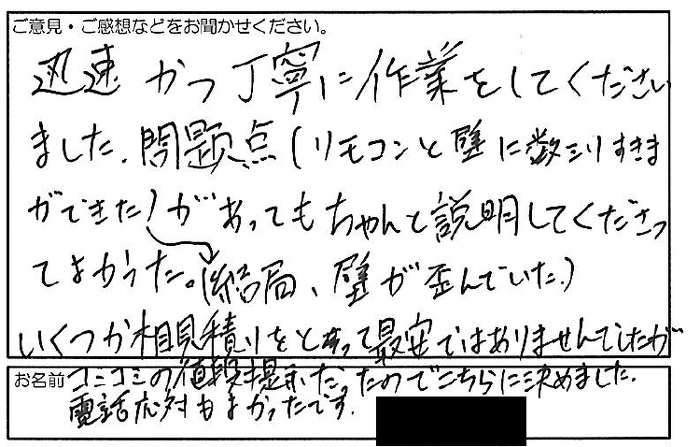 ご意見・ご感想などをお聞かせください。
迅速かつ丁寧に作業をしてください
ました。問題点(リモコンと壁に数ミリすきま
ができた)があってもちゃんと説明してくださっ
てよかった。(結局、壁が歪んでいた。)
いくつか相見積りをとって最安ではありませんでしたが
お名前
コミの値段提示だったのでこちらに決めました。
電話応対もよかったです。